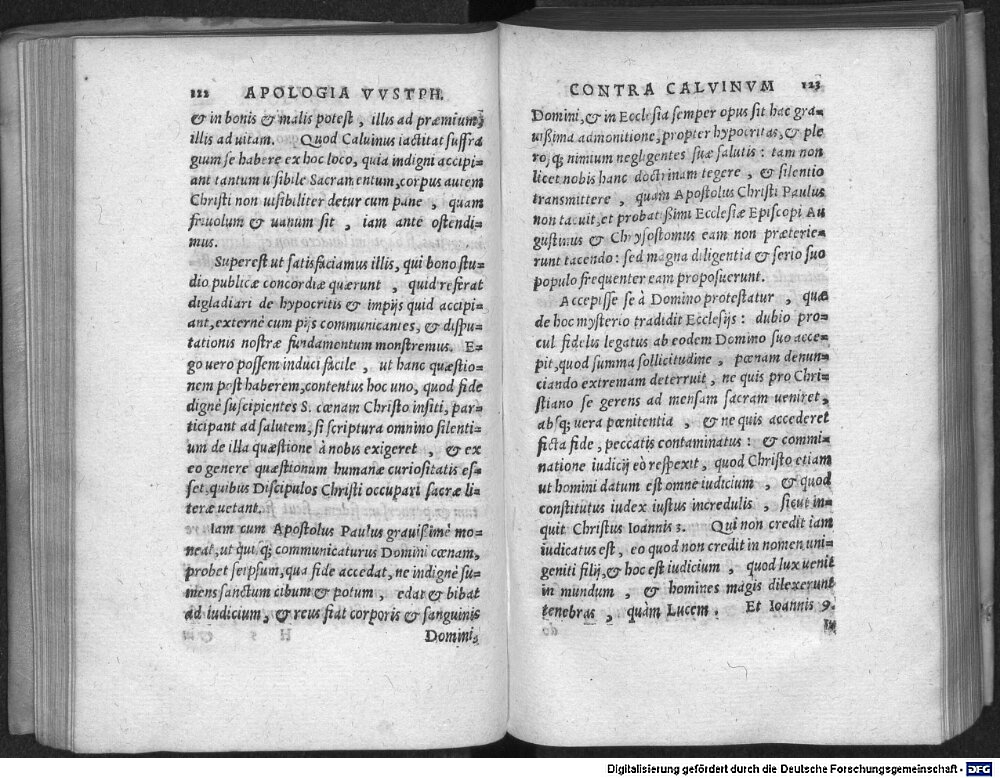 122 APOLOGIA VVSTPH.
& in bonis & malis potest, illis ad præmium,
illis ad uitam. Quod Caluinus iactitat suffra
gium se habere ex hoc loco, quia indigni accipi=
ant tantum uisibile Sacramentum, corpus autem
Christi non uisibiliter detur cum pane, quam
friuolum & uanum sit, iam ante ostendi=
mus.
Superest ut satisfaciamus illis, qui bono stu=
dio publicæ concordiæ quærunt, quid referat
digladiari de hypocritis & impijs quid accipi=
ant, externè cum pijs communicantes, & dispu=
tationis nostræ fundamentum monstremus. E=
go uero possem induci facile, ut hanc quæstio=
nem post haberem, contentus hoc uno, quod fide
dignè suscipientes S. cœnam Christo insiti, par=
ticipant ad salutem, si scriptura omnino silenti=
um de illa quæstione à nobis exigeret, & ex
eo genere quæstionum humanæ curiositatis es=
set, quibus Discipulos Christi occupari sacræ li=
teræ uetant.
Iam cum Apostolus Paulus grauißimè mo=
neat, ut quisq; communicaturus Domini cœnam,
probet seipsum, qua fide accedat, ne indignè su=
mens sanctum cibum & potum, edat & bibat
ad iudicium, & reus fiat corporis & sanguinis
H 5 Domini,
CONTRA CALVINVM 123
Domini, & in Ecclesia semper opus sit hac gra=
uißima admonitione, propter hypocritas, & ple
rosq; nimium negligentes suæ salutis: tam non
licet nobis hanc doctrinam tegere, & silentio
transmittere, quam Apostolus Christi Paulus
non tacuit, et probatißimi Ecclesiæ Episcopi Au
gustinus & Chrysostomus eam non præterie=
runt tacendo: sed magna diligentia & serio suo
populo frequenter eam proposuerunt.
Accepisse se à Domino protestatur, quæ
de hoc mysterio tradidit Ecclesijs: dubio pro=
cul fidelis legatus ab eodem Domino suo acce=
pit, quod summa sollicitudine, pœnam denun=
ciando extremam deterruit, ne quis pro Chri=
stiano se gerens ad mensam sacram ueniret,
absq; uera pœnitentia, & ne quis accederet
ficta fide, peccatis contaminatus: & commi=
natione iudicij eò respexit, quod Christo etiam
ut homini datum est omne iudicium, & quod
constitutus iudex iustus incredulis, sicut in=
quit Christus Ioannis 3. Qui non credit iam
iudicatus est, eo quod non credit in nomen uni=
geniti filij, & hoc est iudicium, quod lux uenit
in mundum, & homines magis dilexerunt
tenebras, quàm Lucem. Et Ioannis 9.
In
Digitalisierung gefördert durch die Deutsche Forschungsgemeinschaft - DFG